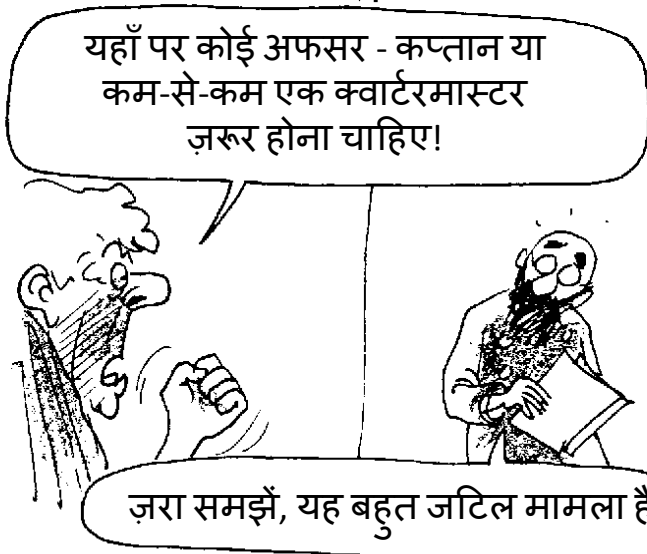 यहाँ पर कोई अफसर - कप्तान या
कम-से-कम एक क्वार्टरमास्टर
ज़रूर होना चाहिए!
ज़रा समझें, यह बहुत जटिल मामला है